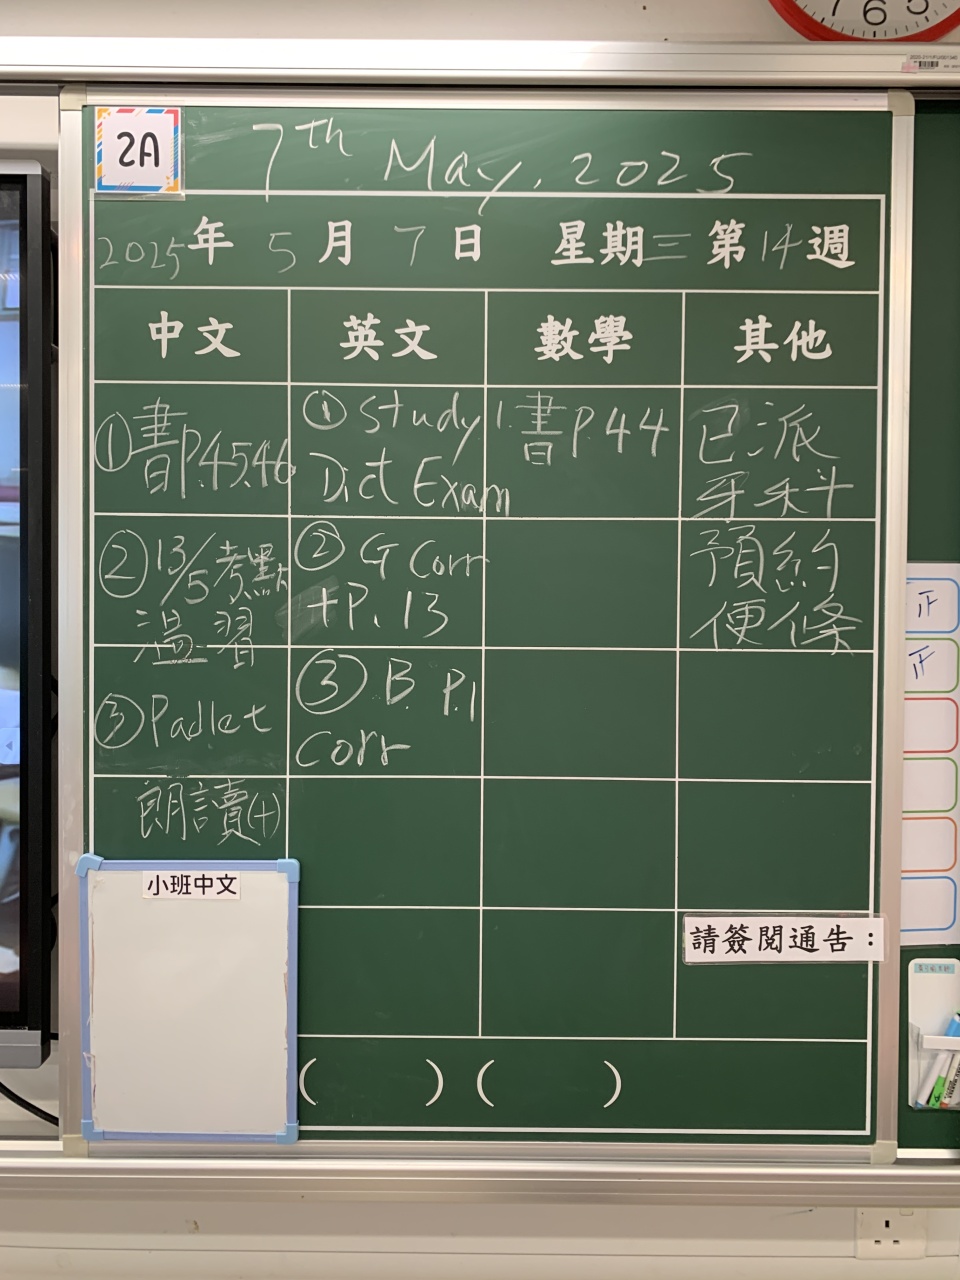 7 6 5
2A
7th May, 2025
2025年 5月 7日 星期三 第14週
中文 英文 數學 其他
①書P.45,46
②13/5考點
溫習
③Padlet
朗讀(十)
① Study
Dict Exam
② G Corr
+P. 13
③ B P.1
Corr
1.書P.44
已派
牙科
預約
便條
正
正
小班中文
請簽閱通告：
( ) ( )